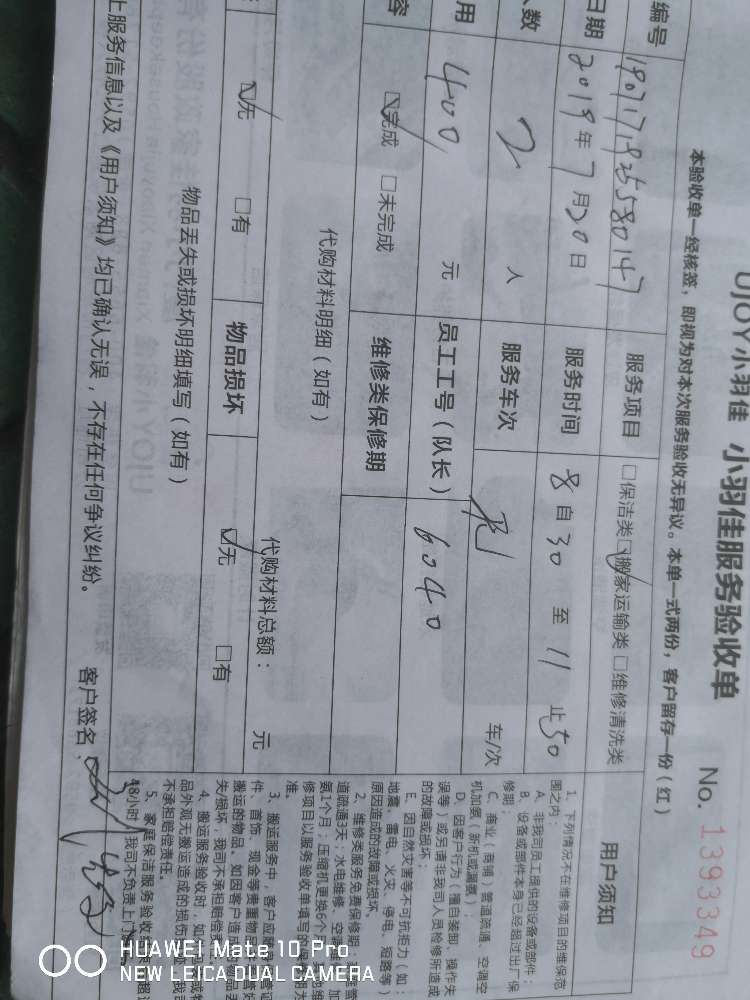 UJOY小羽佳 小羽佳服务验收单
No. 1393349
本验收单一经核签，即视为对本次服务验收无异议。本单一式两份，客户留存一份（红）
编号 1907171925580147 服务项目 □保洁类 ☑搬家运输类 □维修清洗类 用户须知
日期 2019年7月20日 服务时间 8 自 30 至 11 止 50
人数 2 人 服务车次 车/次
用 400 元 员工工号（队长） 6040
容 ☑完成 □未完成 维修类保修期
代购材料明细（如有）
代购材料总额： 元
☑无 □有 物品损坏 ☑无 □有
物品丢失或损坏明细填写（如有）
上服务信息以及《用户须知》均已确认无误，不存在任何争议纠纷。 客户签名：
1、下列情况不在维修项目的维保范
围之内：
A、非我司员工提供的设备或部件；
B、设备或部件本身已经超过出厂保
修期；
C、商业（商铺）管道疏通，空调空
机加氨（新机或漏氨）；
D、因客户行为（擅自装卸、操作失
误等）或另请非我司人员检修所造成
的故障或损坏；
E、因自然灾害等不可抗拒力（如：
地震、雷电、火灾、停电、短路等）
原因造成的故障或损坏。
2、维修类服务免费保修期：
道疏通3天；水电维修、空 加
氨1个月；压缩机更换6个月
修项目以服务验收单填写的
准。
3、搬运服务中，客户应
件、首饰、现金等贵重物品
搬运的物品。如因客户造
失/损坏，我司不承担赔偿
4、搬运服务验收时，如
品外观无搬运造成的损伤
不承担赔偿责任。
5、家庭保洁服务验收
48小时，我司不负责上门
HUAWEI Mate 10 Pro
NEW LEICA DUAL CAMERA